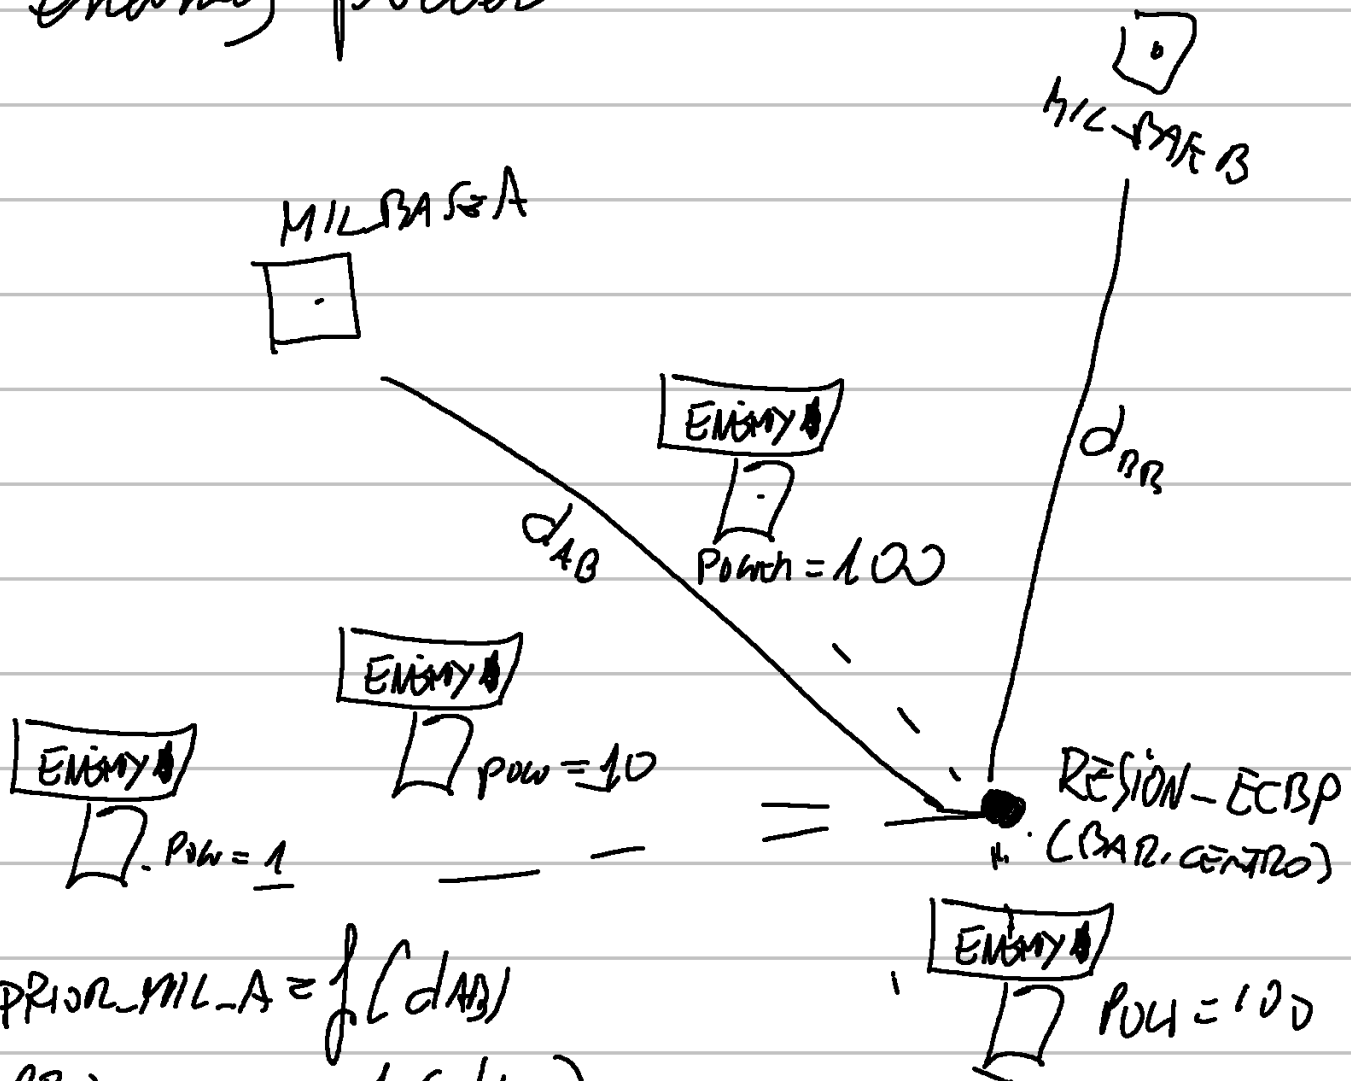 MIL_BASE B
MIL_BASE A
ENEMY
dBB
dAB
POWER = 100
ENEMY
POW = 10
ENEMY
POW = 1
RESION_ECBP
(BAR. CENTRO)
ENEMY
POW = 100
PRIOR_MIL_A = f(dAB)